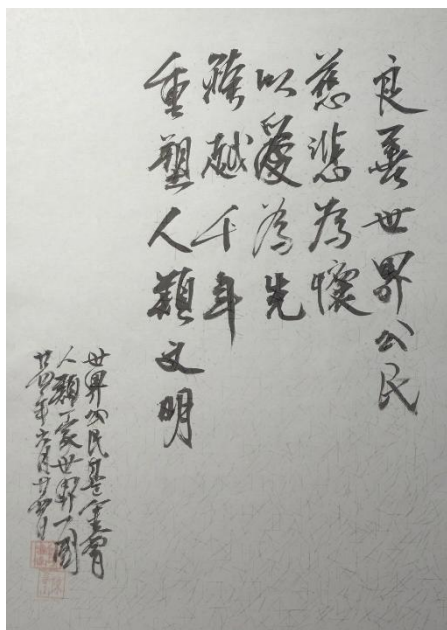 良善世界公民
慈悲為懷
以愛為先
跨越千年
重塑人類文明
世界公民
人類一家世界一國
廿四年六月廿四日